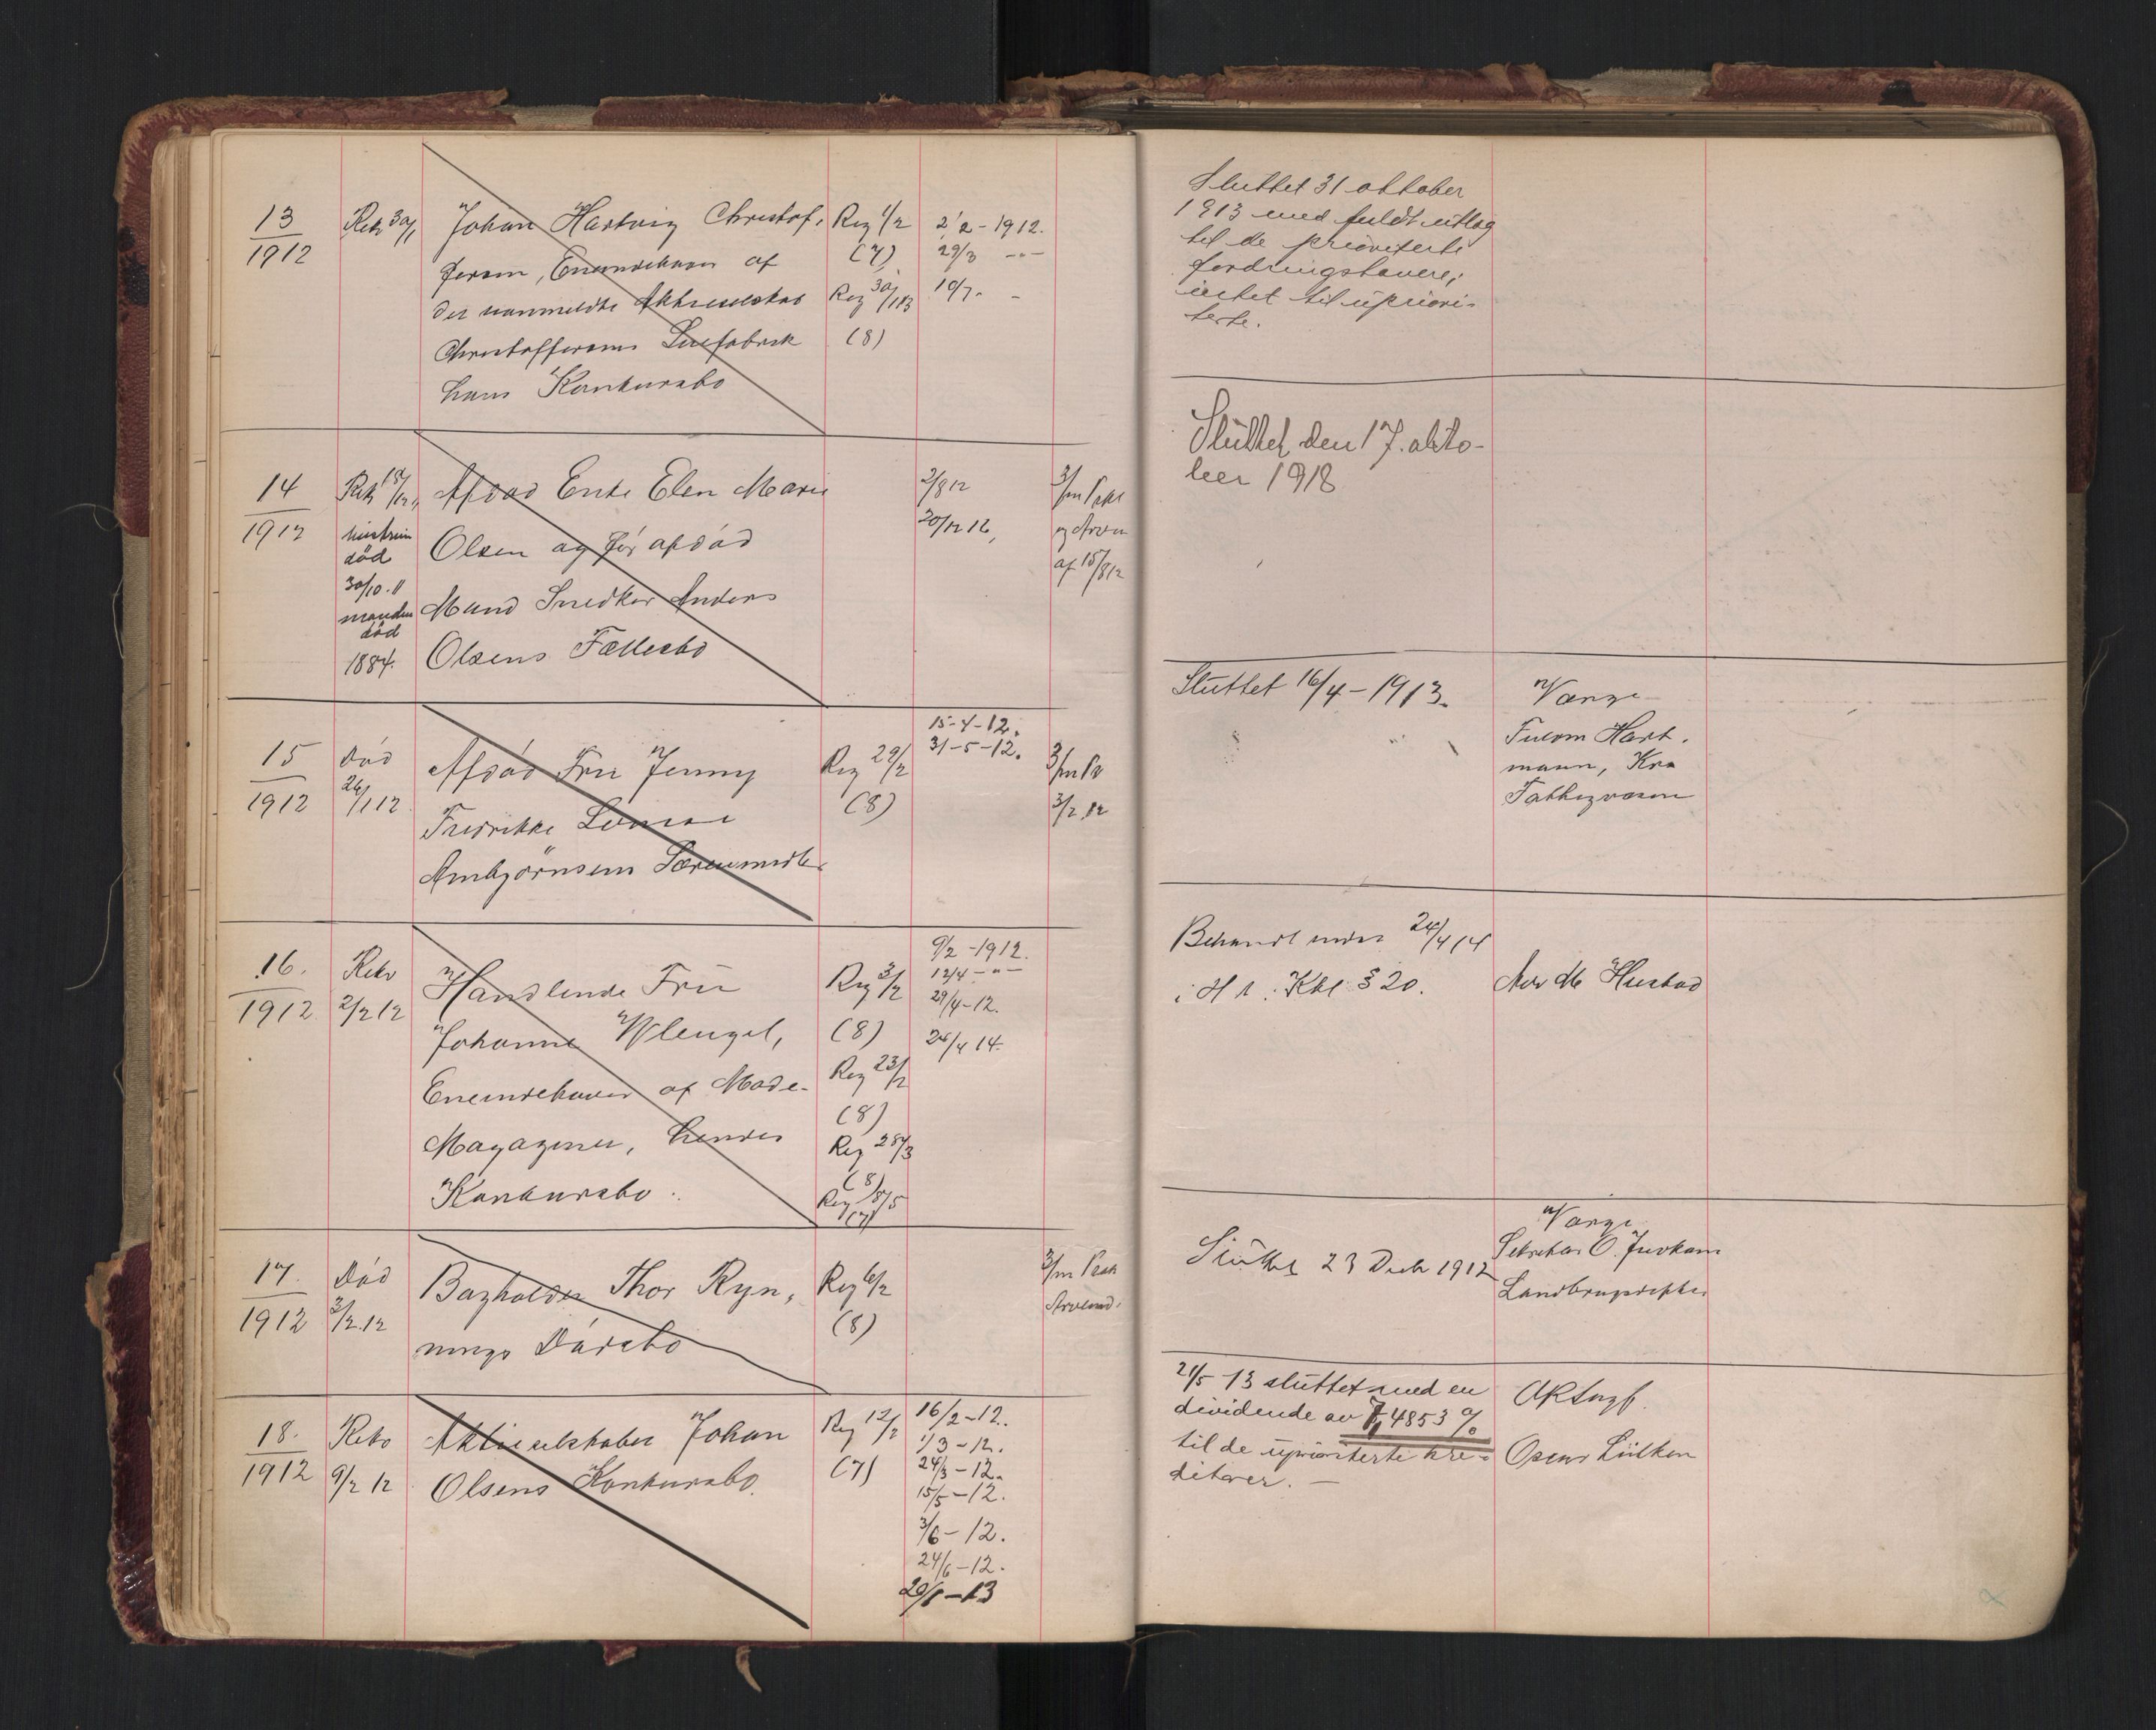 13
1912
Rek 30/1
Johan Hartvig Christof-
fersen, Eneindehaver af
det uanmeldte Aktieselskab
Christoffersens Luefabrik
hans Konkursbo
Reg 1/2
(7)
Reg 30/1 13
(8)
2/2 - 1912.
29/3 -"-
10/7. -
Sluttet 31 oktober
1913 med fuldt utlæg
til de prioriterte
fordringshavere;
intet til upriori-
terte.
14
1912
hustruen
död
30/10.11
manden
död
1884.
Afdød Enke Elen Marie
Olsen og før afdød
Mand Snedker Anders
Olsens Fællesbo
2/8 12
20/12 12,
3/m Prkl
og Arven
af 15/8 12
Sluttet den 17. okto-
ber 1918
15
1912
Død
26/1 12
Afdød Frú Jenny
Fredrikke Lovise
Ambjørnsens Særeiemidler
Reg 29/2
(8)
15-4-12.
31-5-12.
3/m Pr
3/2 12
Sluttet 16/4 - 1913.
Værge
Fuldm Hart-
mann, Kra
Fattigvæsen
16.
1912
Rekv
2/2 12
Handlende Frú
Johanne Wlengel,
Eneindehaver af Mode-
Magaziner, hendes
Konkursbo.
Reg 3/2
(8)
Reg 23/2
(8)
Reg 28/3
(8)
Reg 18/5
(7)
9/2 - 1912.
12/4 - " -
29/4 - 12.
24/4 14.
Behandl endes 24/4 14
i H t. Kkl § 20.
Husbad
17.
1912
Død
3/2.12
Bagholder Thor Ryn,
nings Dødsbo
Reg 6/2
(8)
3/m Prkl
Arveind.
Sluttet 23 Decb 1912
Værge
Sekretær O. Juvkam
Landbrugsdepter
18.
1912
Rekv
9/2 12
Aktieselskabet Johan
Olsens Konkursbo.
Reg 12/2
(7)
16/2 - 12.
1/3 - 12.
24/3 - 12.
15/5 - 12.
3/6 - 12.
24/6 - 12.
20/1 - 13
21/5 13 sluttet med en
dividende av 7,4853 %
til de upriöriterte kre-
ditorer. -
ORSagf.
Oscar Lütken